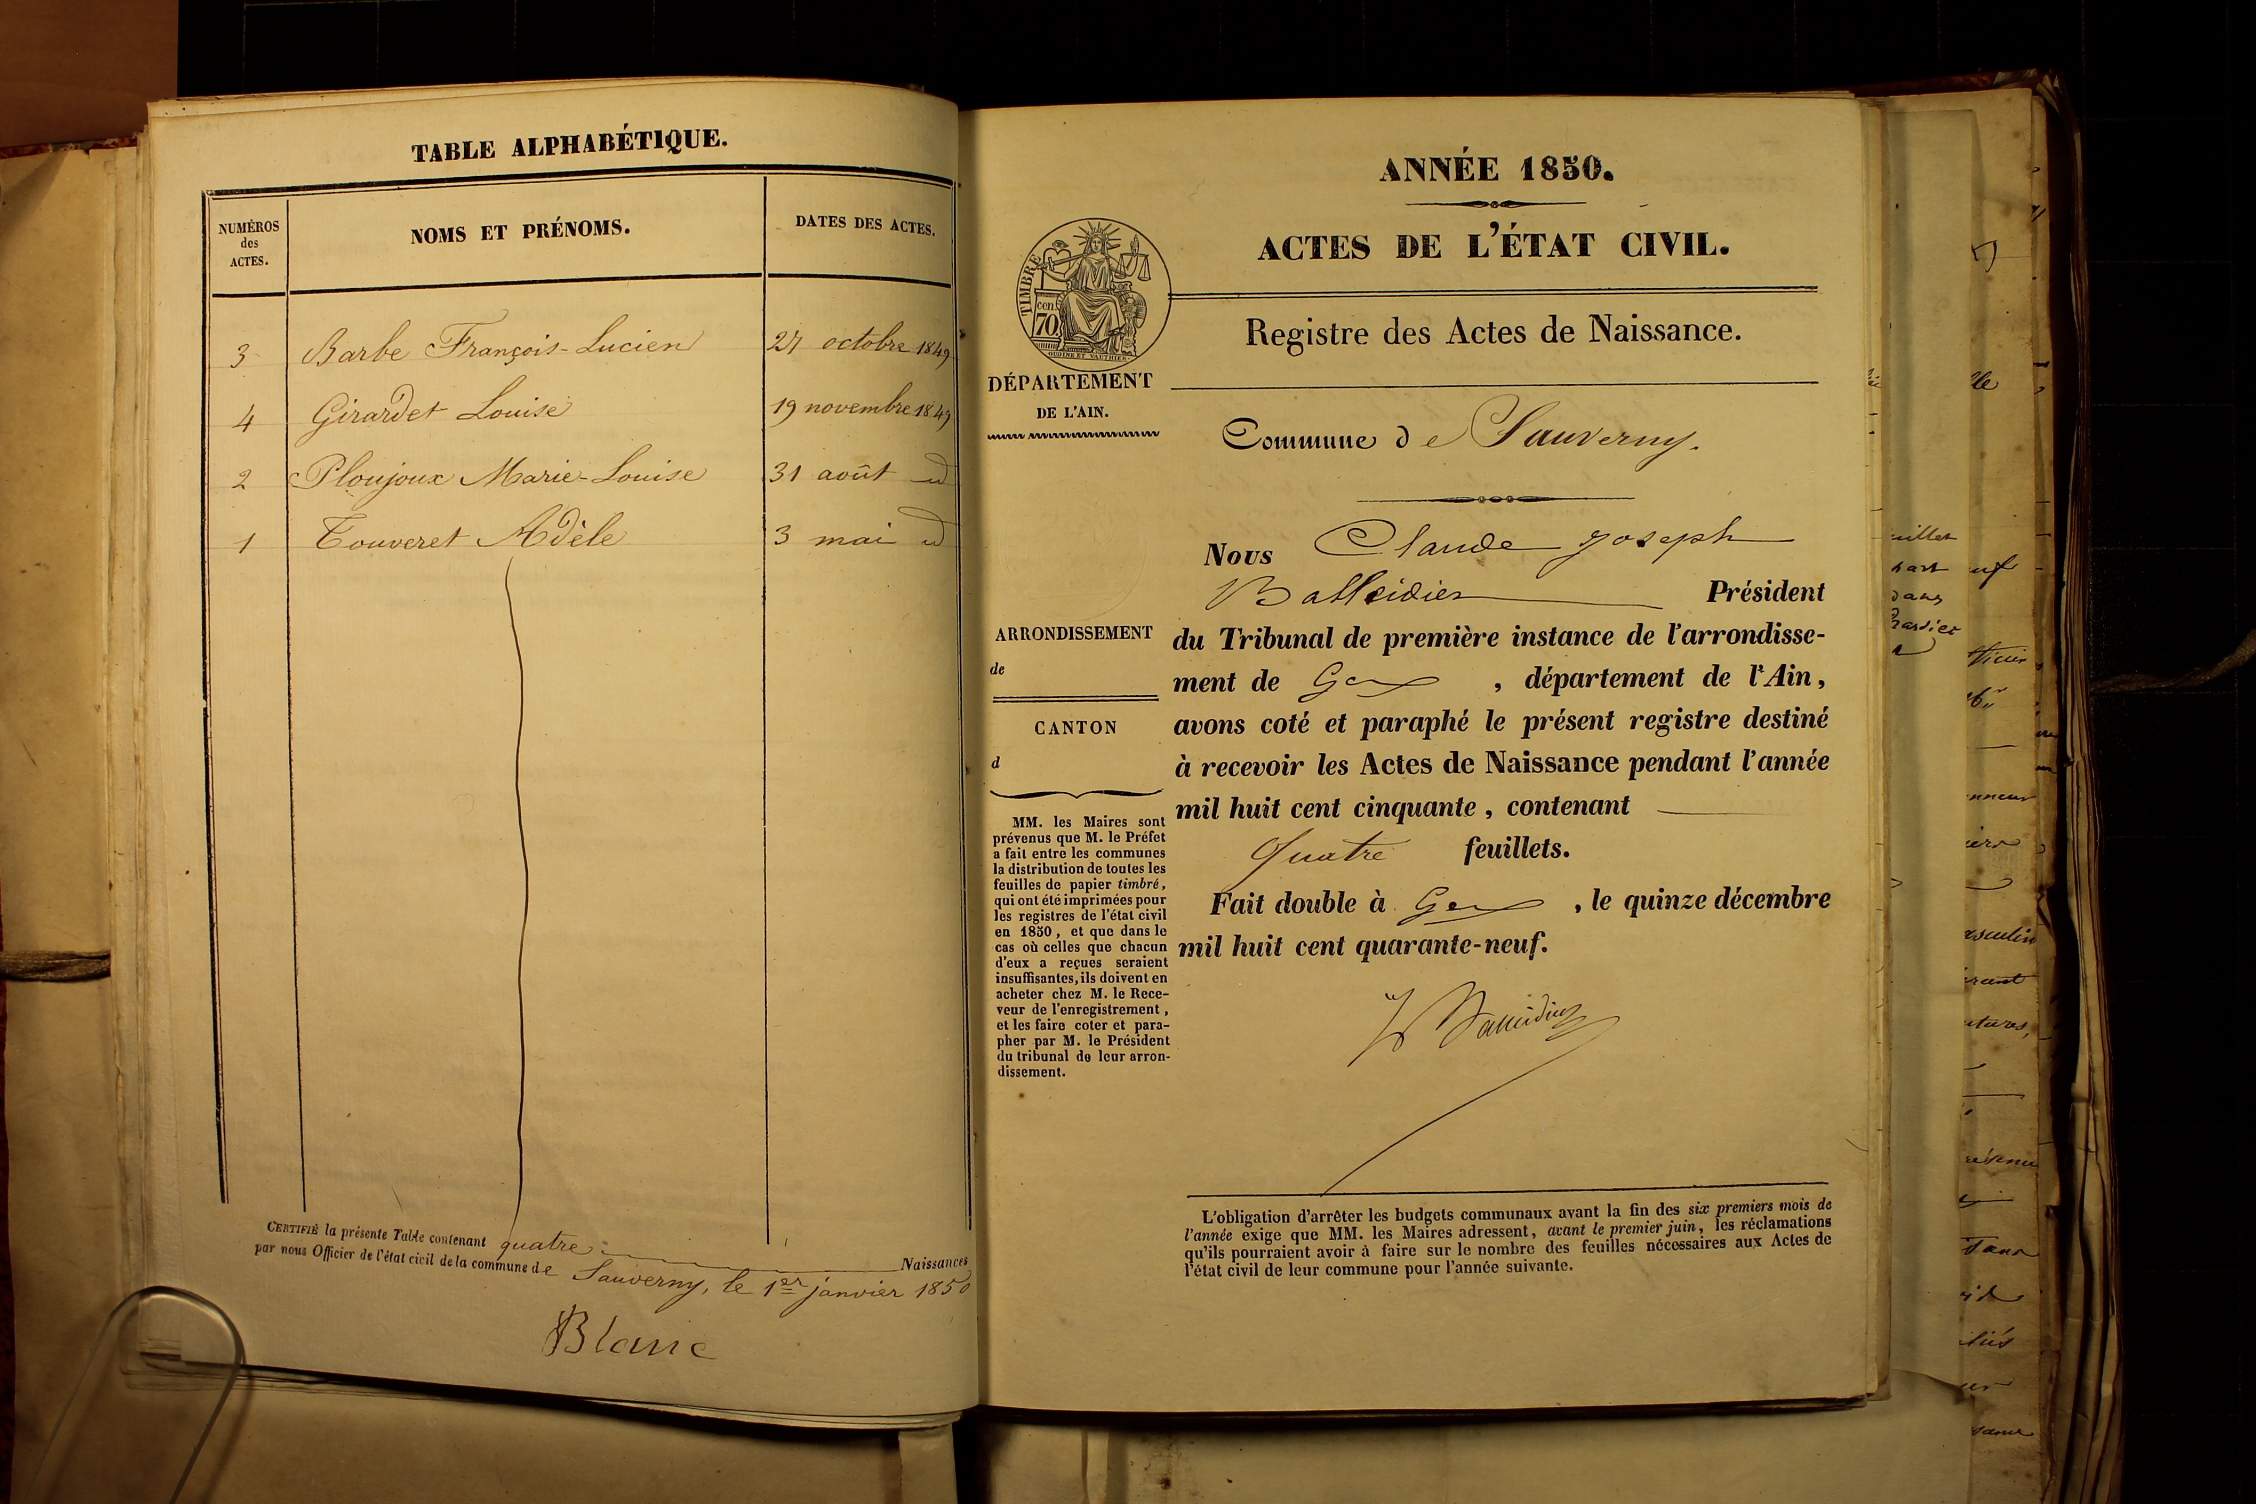 TABLE ALPHABÉTIQUE.
NUMÉROS des ACTES.
NOMS ET PRÉNOMS.
DATES DES ACTES.
3 Barbe François-Lucien 27 octobre 1849
4 Girardet Louise 19 novembre 1849
2 Ploujoux Marie-Louise 31 août id
1 Touveret Adèle 3 mai id
CERTIFIÉ la présente Table contenant quatre Naissances
par nous Officier de l'état civil de la commune de Sauverny, le 1er janvier 1850
Blanc
ANNÉE 1850.
ACTES DE L'ÉTAT CIVIL.
Registre des Actes de Naissance.
TIMBRE
70 cen
OUDINÉ ET VAUTHIER
DÉPARTEMENT
DE L'AIN.
Commune de Sauverny.
Nous Claude Joseph
Président
du Tribunal de première instance de l'arrondisse-
ment de Gex, département de l'Ain,
avons coté et paraphé le présent registre destiné
à recevoir les Actes de Naissance pendant l'année
mil huit cent cinquante, contenant
Quatre feuillets.
Fait double à Gex, le quinze décembre
mil huit cent quarante-neuf.
ARRONDISSEMENT
de
CANTON
d
MM. les Maires sont
prévenus que M. le Préfet
a fait entre les communes
la distribution de toutes les
feuilles de papier timbré,
qui ont été imprimées pour
les registres de l'état civil
en 1850, et que dans le
cas où celles que chacun
d'eux a reçues seraient
insuffisantes, ils doivent en
acheter chez M. le Rece-
veur de l'enregistrement,
et les faire coter et para-
pher par M. le Président
du tribunal de leur arron-
dissement.
L'obligation d'arrêter les budgets communaux avant la fin des six premiers mois de
l'année exige que MM. les Maires adressent, avant le premier juin, les réclamations
qu'ils pourraient avoir à faire sur le nombre des feuilles nécessaires aux Actes de
l'état civil de leur commune pour l'année suivante.